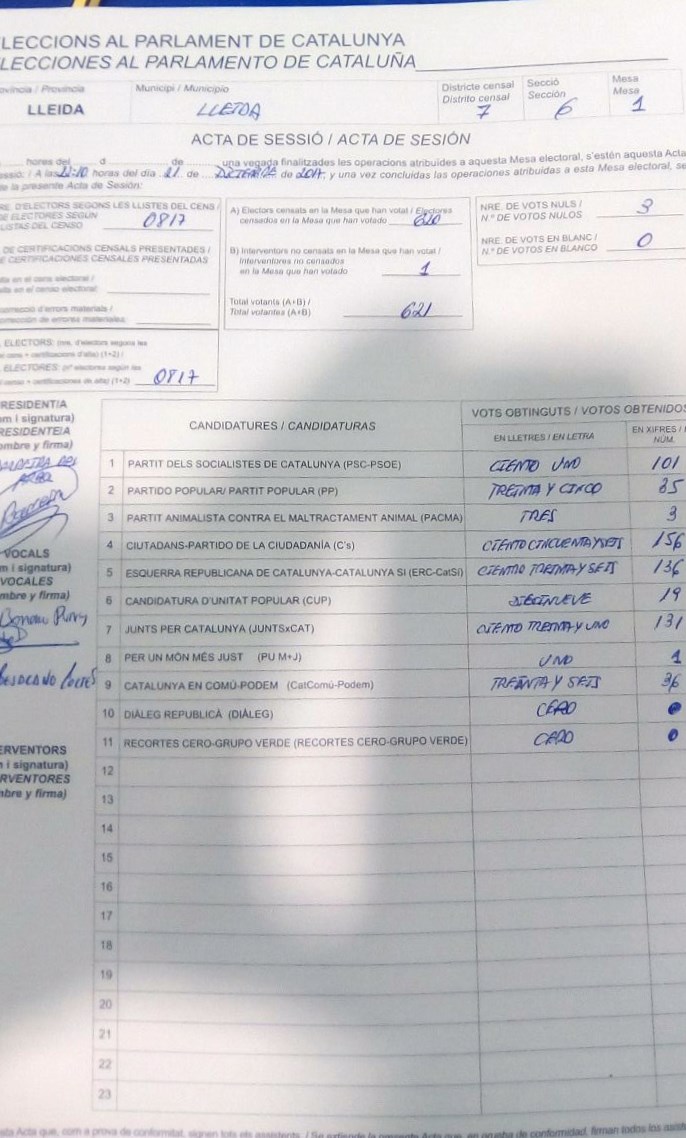 LECCIONS AL PARLAMENT DE CATALUNYA
LECCIONES AL PARLAMENTO DE CATALUÑA
ovíncia / Provincia
LLEIDA
Municipi / Municipio
LLEIDA
Districte censal
Distrito censal
7
Secció
Sección
6
Mesa
Mesa
1
ACTA DE SESSIÓ / ACTA DE SESIÓN
hores del d de una vegada finalitzades les operacions atribuïdes a aquesta Mesa electoral, s'estén aquesta Acta
essió: / A las 22:10 horas del día 21 de DICIEMBRE de 2017, y una vez concluidas las operaciones atribuidas a esta Mesa electoral, se
de la presente Acta de Sesión:
RE. D'ELECTORS SEGONS LES LLISTES DEL CENS /
DE ELECTORES SEGÚN
LISTAS DEL CENSO
0817
DE CERTIFICACIONS CENSALS PRESENTADES /
CERTIFICACIONES CENSALES PRESENTADAS
lta en el cens electoral /
lta en el censo electoral:
correcció d'errors materials /
orrección de errores materiales:
ELECTORS: (nre. d'electors segons les
el cens + certificacions d'alta) (1+2) /
ELECTORES: (nº electores según las
censo + certificaciones de alta) (1+2)
0817
A) Electors censats en la Mesa que han votat / Electores
censados en la Mesa que han votado
620
B) Interventors no censats en la Mesa que han votat /
Interventores no censados
en la Mesa que han votado
1
Total votants (A+B) /
Total votantes (A+B)
621
NRE. DE VOTS NULS /
N.º DE VOTOS NULOS
3
NRE. DE VOTS EN BLANC /
N.º DE VOTOS EN BLANCO
0
RESIDENT/A
om i signatura)
RESIDENTE/A
ombre y firma)
VOCALS
m i signatura)
VOCALES
mbre y firma)
ERVENTORS
m i signatura)
RVENTORES
mbre y firma)
CANDIDATURES / CANDIDATURAS
VOTS OBTINGUTS / VOTOS OBTENIDOS
EN LLETRES / EN LETRA
EN XIFRES /
NÚM.
1 PARTIT DELS SOCIALISTES DE CATALUNYA (PSC-PSOE) CIENTO UNO 101
2 PARTIDO POPULAR/ PARTIT POPULAR (PP) TREINTA Y CINCO 35
3 PARTIT ANIMALISTA CONTRA EL MALTRACTAMENT ANIMAL (PACMA) TRES 3
4 CIUTADANS-PARTIDO DE LA CIUDADANÍA (C's) CIENTO CINCUENTA Y SEIS 156
5 ESQUERRA REPUBLICANA DE CATALUNYA-CATALUNYA SÍ (ERC-CatSí) CIENTO TREINTA Y SEIS 136
6 CANDIDATURA D'UNITAT POPULAR (CUP) DIECINUEVE 19
7 JUNTS PER CATALUNYA (JUNTSxCAT) CIENTO TREINTA Y UNO 131
8 PER UN MÓN MÉS JUST (PU M+J) UNO 1
9 CATALUNYA EN COMÚ-PODEM (CatComú-Podem) TREINTA Y SEIS 36
10 DIÀLEG REPUBLICÀ (DIÀLEG) CERO 0
11 RECORTES CERO-GRUPO VERDE (RECORTES CERO-GRUPO VERDE) CERO 0
12
13
14
15
16
17
18
19
20
21
22
23
esta Acta que, com a prova de conformitat, signen tots els assistents. / Se extiende la presente Acta que, en prueba de conformidad, firman todos los asiste